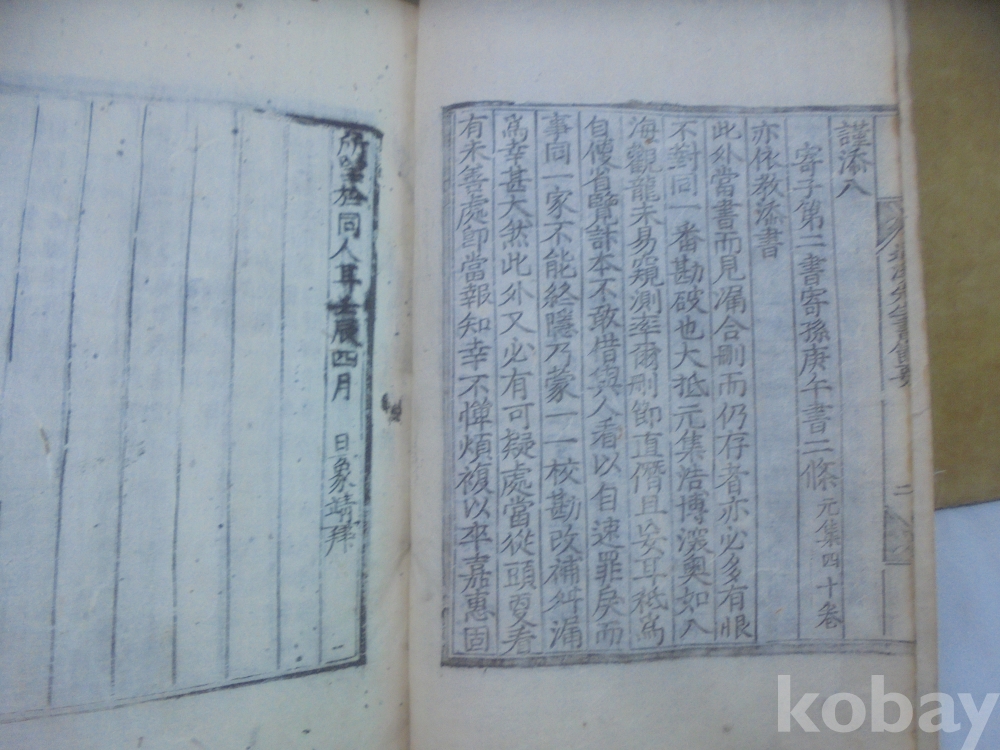 謹添入
寄子第二書寄孫庚午書二條 元集四十卷
亦依教添書
此外當書而見漏合刪而仍存者亦必多有恨
不對同一番勘破也大抵元集浩博深奧如入
海觀龍未易窺測率爾刪節直僭且妄耳秖爲
自便省覽計本不敢借與人看以自速罪戾而
事同一家不能終隱乃蒙一一校勘改補舛漏
爲幸甚大然此外又必有可疑處當從頭更看
有未善處卽當報知幸不憚煩複以卒嘉惠固
所望於同人耳壬辰四月 日象靖拜
先生書節要
二
一
kobay